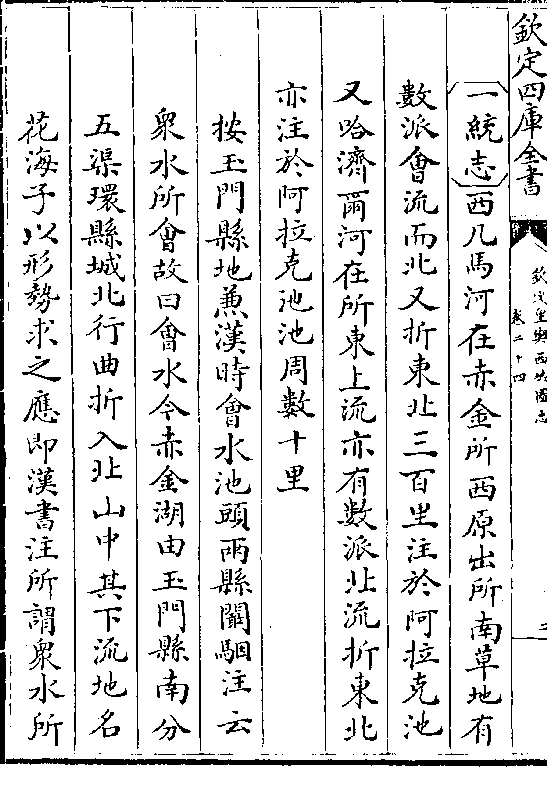 欽定四庫全書
欽定皇輿西域圖志
卷二十四
一統志西几馬河在赤金所西原出所南草地有
數派會流而北又折東北三百里注於阿拉克池
又哈濟爾河在所東上流亦有數派北流折東北
亦注於阿拉克池池周數十里
按玉門縣地兼漢時會水池頭兩縣闞駰注云
衆水所會故曰會水今赤金湖由玉門縣南分
五渠環縣城北行曲折入北山中其下流地名
花海子以形勢求之應即漢書注所謂衆水所